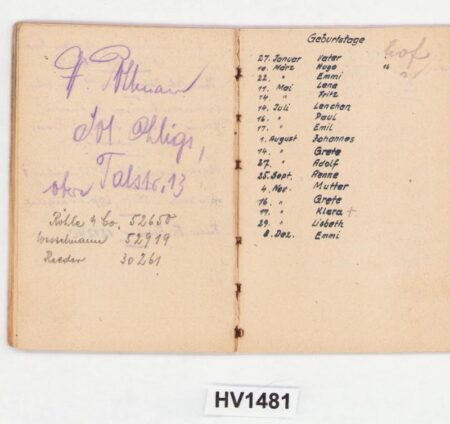 Tillmann
Sol. Ohligs,
obere Talstr. 13
Röhle & Co. 52650
Wesselmann 52919
Reeder 30261
Geburtstage
27. Januar Vater
10. März Hugo
22. " Emmi
11. Mai Lene
14. " Fritz
14. Juli Lenchen
16. " Paul
17. " Emil
1. August Johannes
14. " Grete
27. " Adolf
25. Sept. Renne
4. Nov. Mutter
16. " Grete
19. " Klara +
29. " Lisbeth
8. Dez. Emmi
HV1481